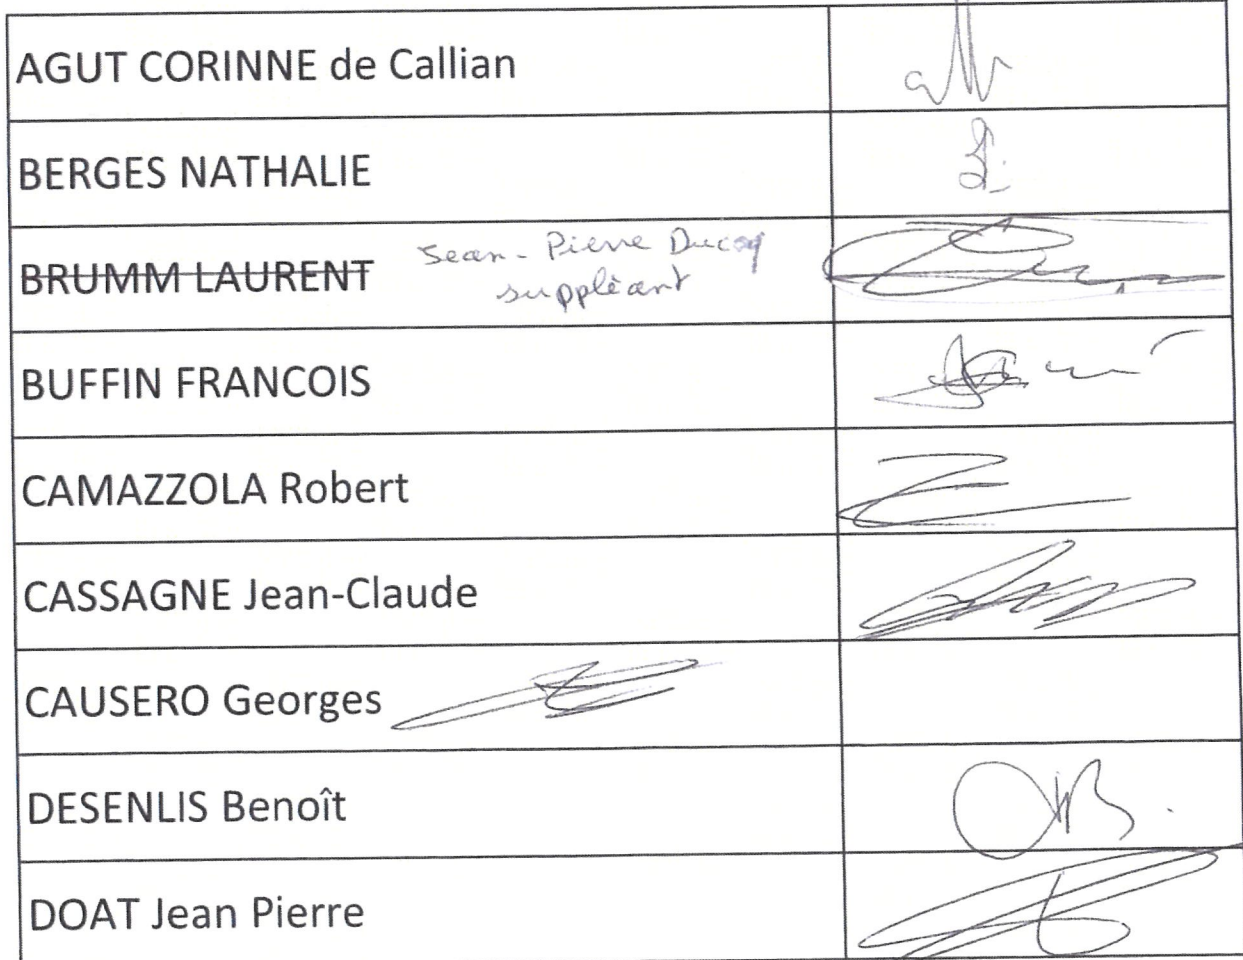 AGUT CORINNE de Callian
BERGES NATHALIE
BRUMM LAURENT Jean-Pierre Ducoq
suppléant
BUFFIN FRANCOIS
CAMAZZOLA Robert
CASSAGNE Jean-Claude
CAUSERO Georges
DESENLIS Benoît
DOAT Jean Pierre